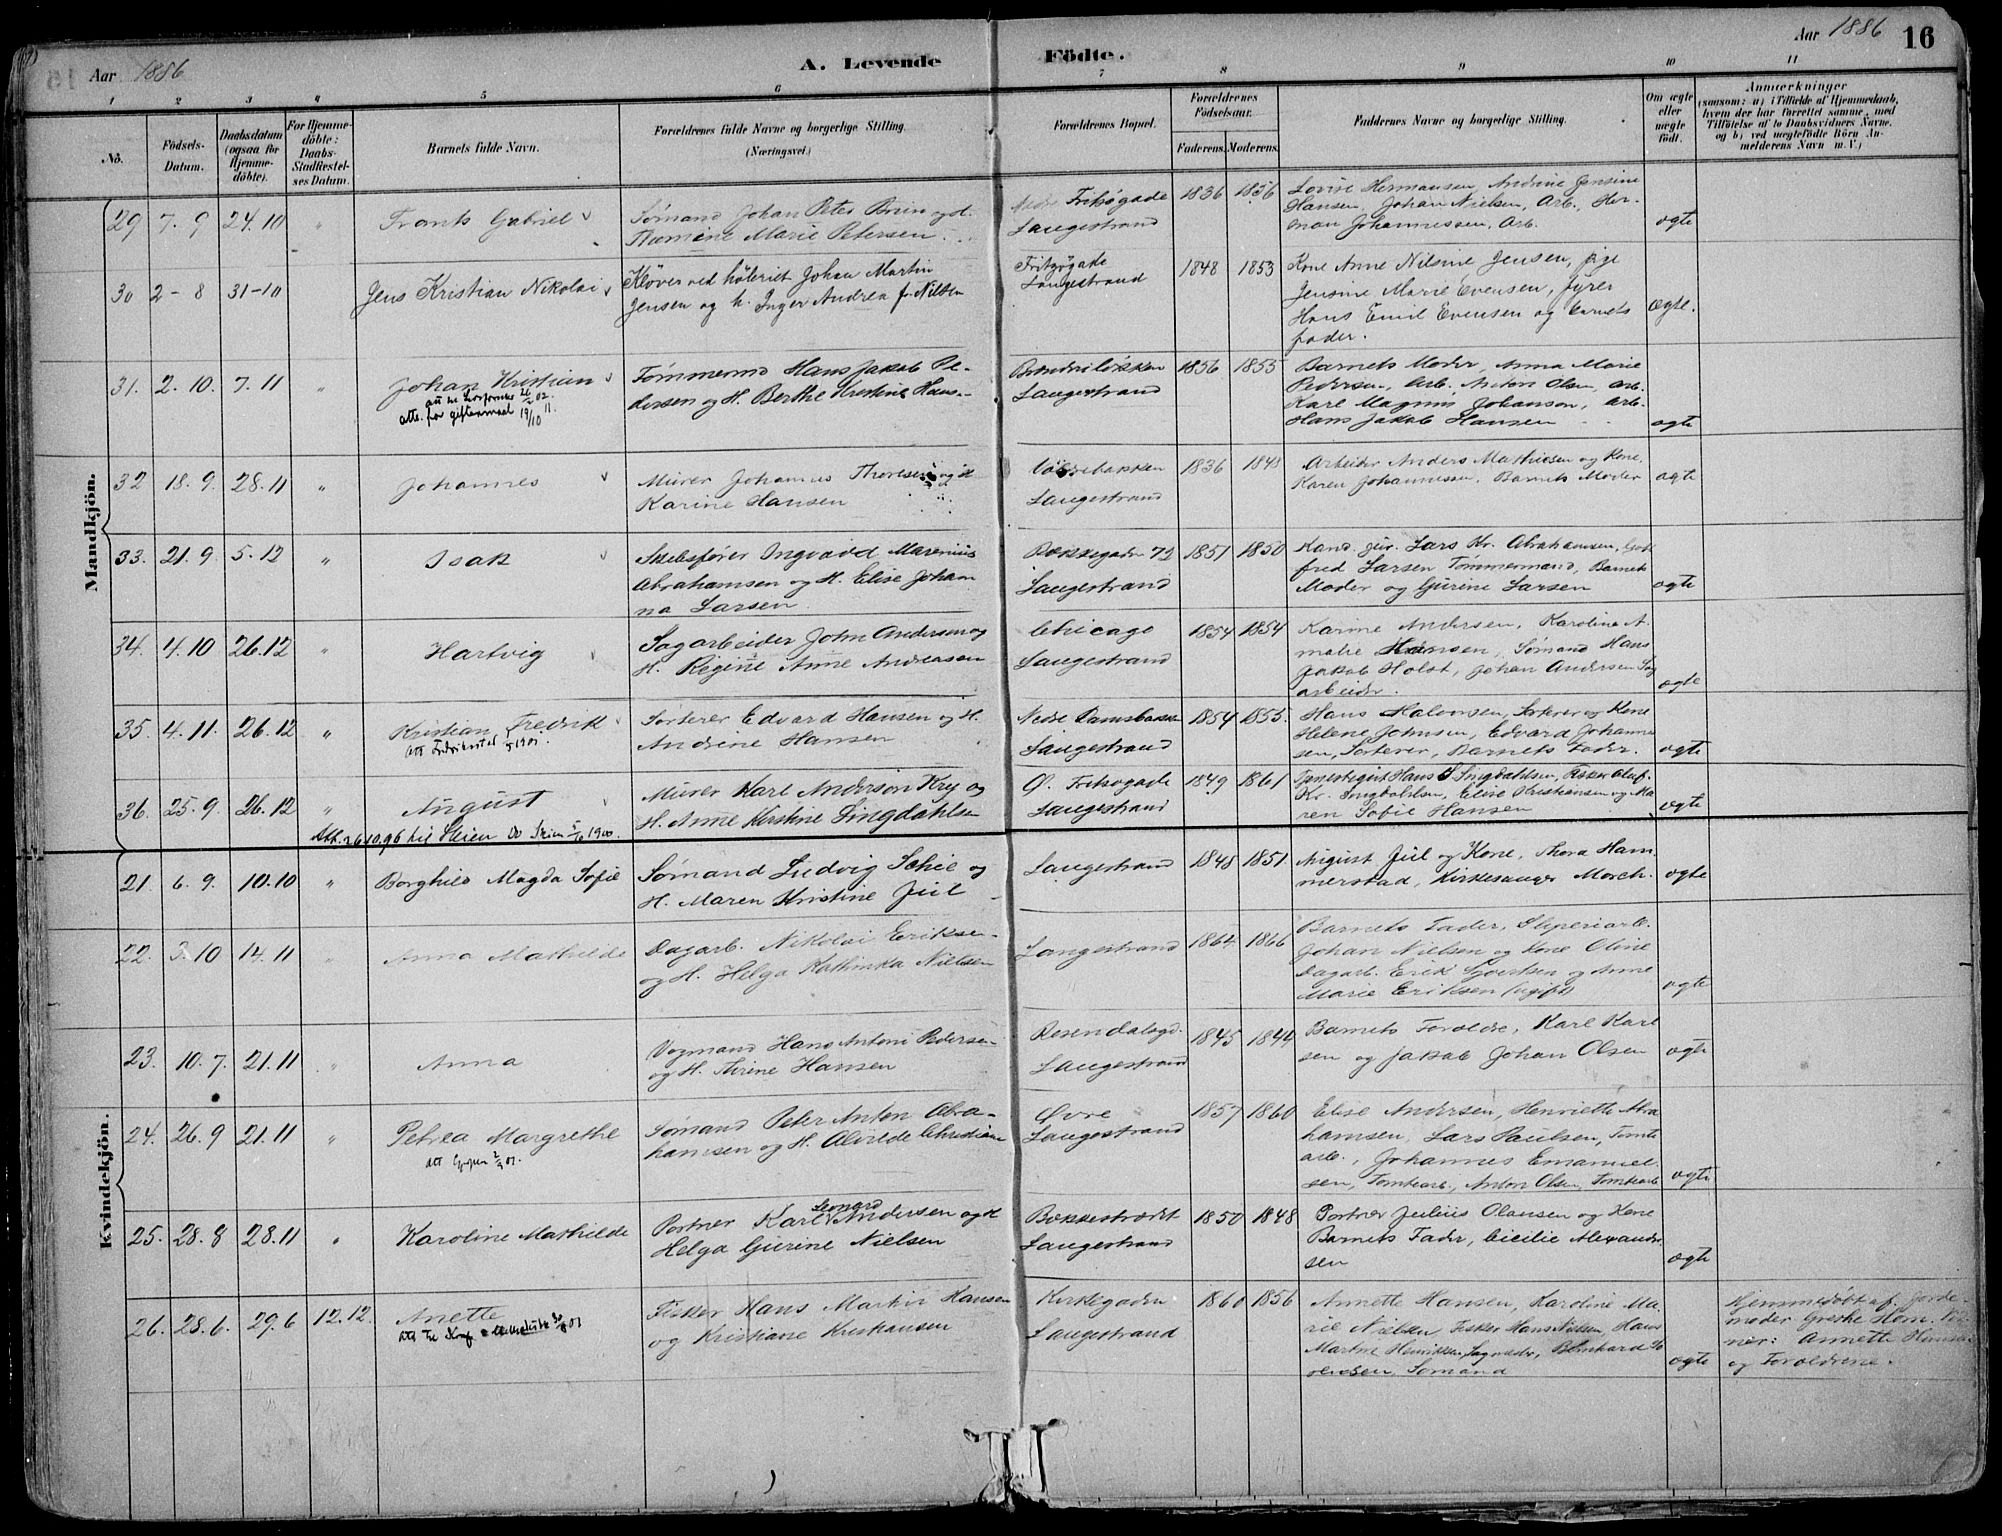 Aar 1886
A. Levende Födte.
Aar 1886
16
1 2 3 4 5 6 7 8 9 10 11
No.
Födsels-Datum.
Daabsdatum (ogsaa for Hjemme-döbte).
For Hjemme-döbte: Daabs-Stadfæstel-ses Datum.
Barnets fulde Navn.
Forældrenes fulde Navne og borgerlige Stilling.
(Næringsvei.)
Forældrenes Bopæl.
Forældrenes Födselsaar.
Faderens. Moderens.
Faddernes Navne og borgerlige Stilling.
Om ægte eller uægte født.
Anmærkninger
(saasom: a) i Tilfælde af Hjemmedaab,
hvem der har forrettet samme, med
Tilföielse af to Daabsvidners Navne,
og b) ved uægtefödte Börn An-
melderens Navn m. V.)
Mandkjön.
29 7. 9 24. 10 " Frants Gabriel
Sømand Johan Peter Bruin og H.
Marie Petersen
Nedre Fritsøgade
Langestrand
1836 1856
Lovise Hermansen, Andrine Jensine
Hansen, Johan Nielsen, Arb. Her-
man Johannessen, Arb.
ægte
30 2 - 8 31-10 Jens Kristian Nikolai
Kløver ved høvleriet Johan Martin
Jensen og h. Inger Andrea f. Nilsen
Fritzøgade
Langestrand
1848 1853
Kone Anne Nilsine Jensen, pige
Jensine Marie Evensen, fyrer
Hans Emil Evensen og barnets
fader.
ægte.
31. 2. 10. 7. 11 " Johan Kristian
att. for giftermaal 19/10 11.
Tømmermd Hans Jakob Pe-
dersen og H. Berthe Kristine Hans-
Langestrand
1856 1855
Barnets Moder, Anna Marie
Pedersen, Arb. Anton Olsen, Arb.
Karl Magnus Johanson, Arb.
Hans Jakob Hansen
ægte
32 18. 9. 28. 11 " Johannes
Murer Johannes Thoresen og H
Karine Hansen
Langestrand
1836 1848
Arbeider Anders Mathiesen og Kone,
Karen Johannessen, Barnets Moder
ægte
33. 21. 9. 5. 12 " Isak
Skibsfører Ingvald Marenius
Abrahamsen og H. Elise Johan
na Larsen
Bækkegaden 72
Langestrand
1851 1850
Kand. jur. Lars Kr. Abrahamsen, Gott
fred Larsen Tømmermand, Barnets
Moder og Gurine Larsen
ægte
34. 4. 10 26. 12 " Hartvig
Sagarbeider John Andersen og
H. Regine Anne Andreasen
Chicago
Langestrand
1854 1854
Karine Andersen, Karoline A.
malie Hansen, Sømand Hans
Jakob Holst, Johan Andersen Sag
arbeider.
ægte
35. 4. 11. 26. 12 " Kristian Fredrik
Att. Fredrikstad 1901.
Sorterer Edvard Hansen og H.
Andrine Hansen
Nedre Damsbakken
Langestrand
1854 1855.
Hans Halvorsen, Sorterer og Kone
Helene Johnsen, Edvard Johanne
sen, Sorterer, Barnets Fader.
ægte
36. 25. 9. 26. 12 " August
Att. 26.10.96 til Skien Do Skien 1900.
Murer Karl Anderson Kry og
H. Anne Kirstine Lingdahlsen
Ø. Fritsøgade
Langestrand
1849 1861
Tjenestegut Hans S Lingdahlsen, Fisker Oluf
Kr. Lingdahlsen, Elise Kristiansen og Ma
ren Sofie Hansen
ægte
Kvindekjön.
21. 6. 9. 10. 10 " Borghild Magda Sofie
Sømand Ludvig Schie og
H. Maren Kristine Juul
Langestrand
1848 1851.
August Juul og Kone, Thora Ham
merstad, Kirkesanger Morch.
ægte
22. 3. 10 14. 11 " Anna Mathilde
Dagarb. Nikolai Eriksen
og H. Helga Kathinka Nielsen
Langestrand
1864. 1866
Barnets Fader, Sliperiarb.
Johan Nielsen og Kone Oline
Dagarb. Erik Sjvertsen og Anne
Marie Eriksen (ugift)
ægte
23. 10. 7. 21. 11 " Anna
Vognmand Hans Antoni Pedersen
og H. Thrine Hansen
Rosendalsgd.
Langestrand
1845 1844
Barnets Forældre, Karl Karl
sen og Jakob Johan Olsen
ægte
24. 26. 9 21. 11 " Petrea Margrethe
Sømand Peter Anton Abra-
hamsen og H. Alvilde Christian
Øvre
Langestrand
1857 1860
Elise Andersen, Henriette Abra
hamsen, Lars Paulsen, Tomte
arb., Johannes Emanuel
sen, Tomtearb., Anton Olsen, Tomtearb
ægte
25. 28. 8 28. 11 " Karoline Mathilde
Portner Karl Leonard Andersen og H
Helga Gurine Nielsen
Bækkestrædet
Langestrand
1850 1848
Portner Julius Olausen og Kone
Barnets Fader, Cicilie Alexander
sen
ægte
26. 28. 6. 29. 6 12. 12. Anette
Fisker Hans Martin Hansen
og Kristiane Kristiansen
Kirkegaden
Langestrand
1860 1856
Annette Hansen, Karoline Ma-
rie Nielsen, Fisker Hans Nielsen, Hans
Martin Henriksen, Sagmester, Bernhard
Sømand
ægte
Hjemmedøbt af Jorde-
moder Grethe Holm. Vid
ner: Annette Hansen
og Forældrene.